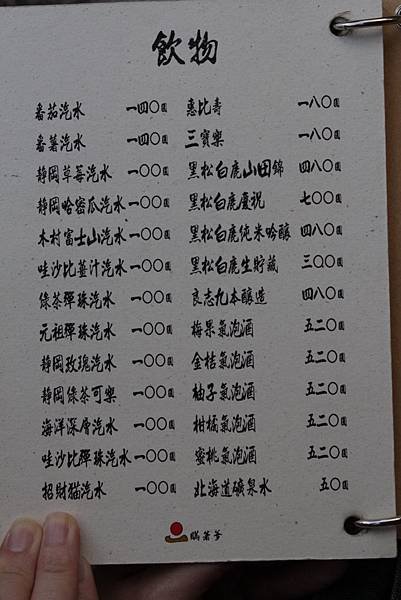 飲物
番茄汽水 一四〇圓 惠比壽 一八〇圓
番薯汽水 一四〇圓 三寶樂 一八〇圓
靜岡草莓汽水 一〇〇圓 黑松白鹿山田錦 四八〇圓
靜岡哈密瓜汽水 一〇〇圓 黑松白鹿慶祝 七〇〇圓
木村富士山汽水 一〇〇圓 黑松白鹿純米吟釀 四八〇圓
哇沙比薑汁汽水 一〇〇圓 黑松白鹿生貯藏 三〇〇圓
綠茶彈珠汽水 一〇〇圓 良志九本釀造 四八〇圓
元祖彈珠汽水 一〇〇圓 梅果氣泡酒 五二〇圓
靜岡玫瑰汽水 一〇〇圓 金桔氣泡酒 五二〇圓
靜岡綠茶可樂 一〇〇圓 柚子氣泡酒 五二〇圓
海洋深層汽水 一〇〇圓 柑橘氣泡酒 五二〇圓
哇沙比彈珠汽水 一〇〇圓 蜜桃氣泡酒 五二〇圓
招財貓汽水 一〇〇圓 北海道礦泉水 五〇圓